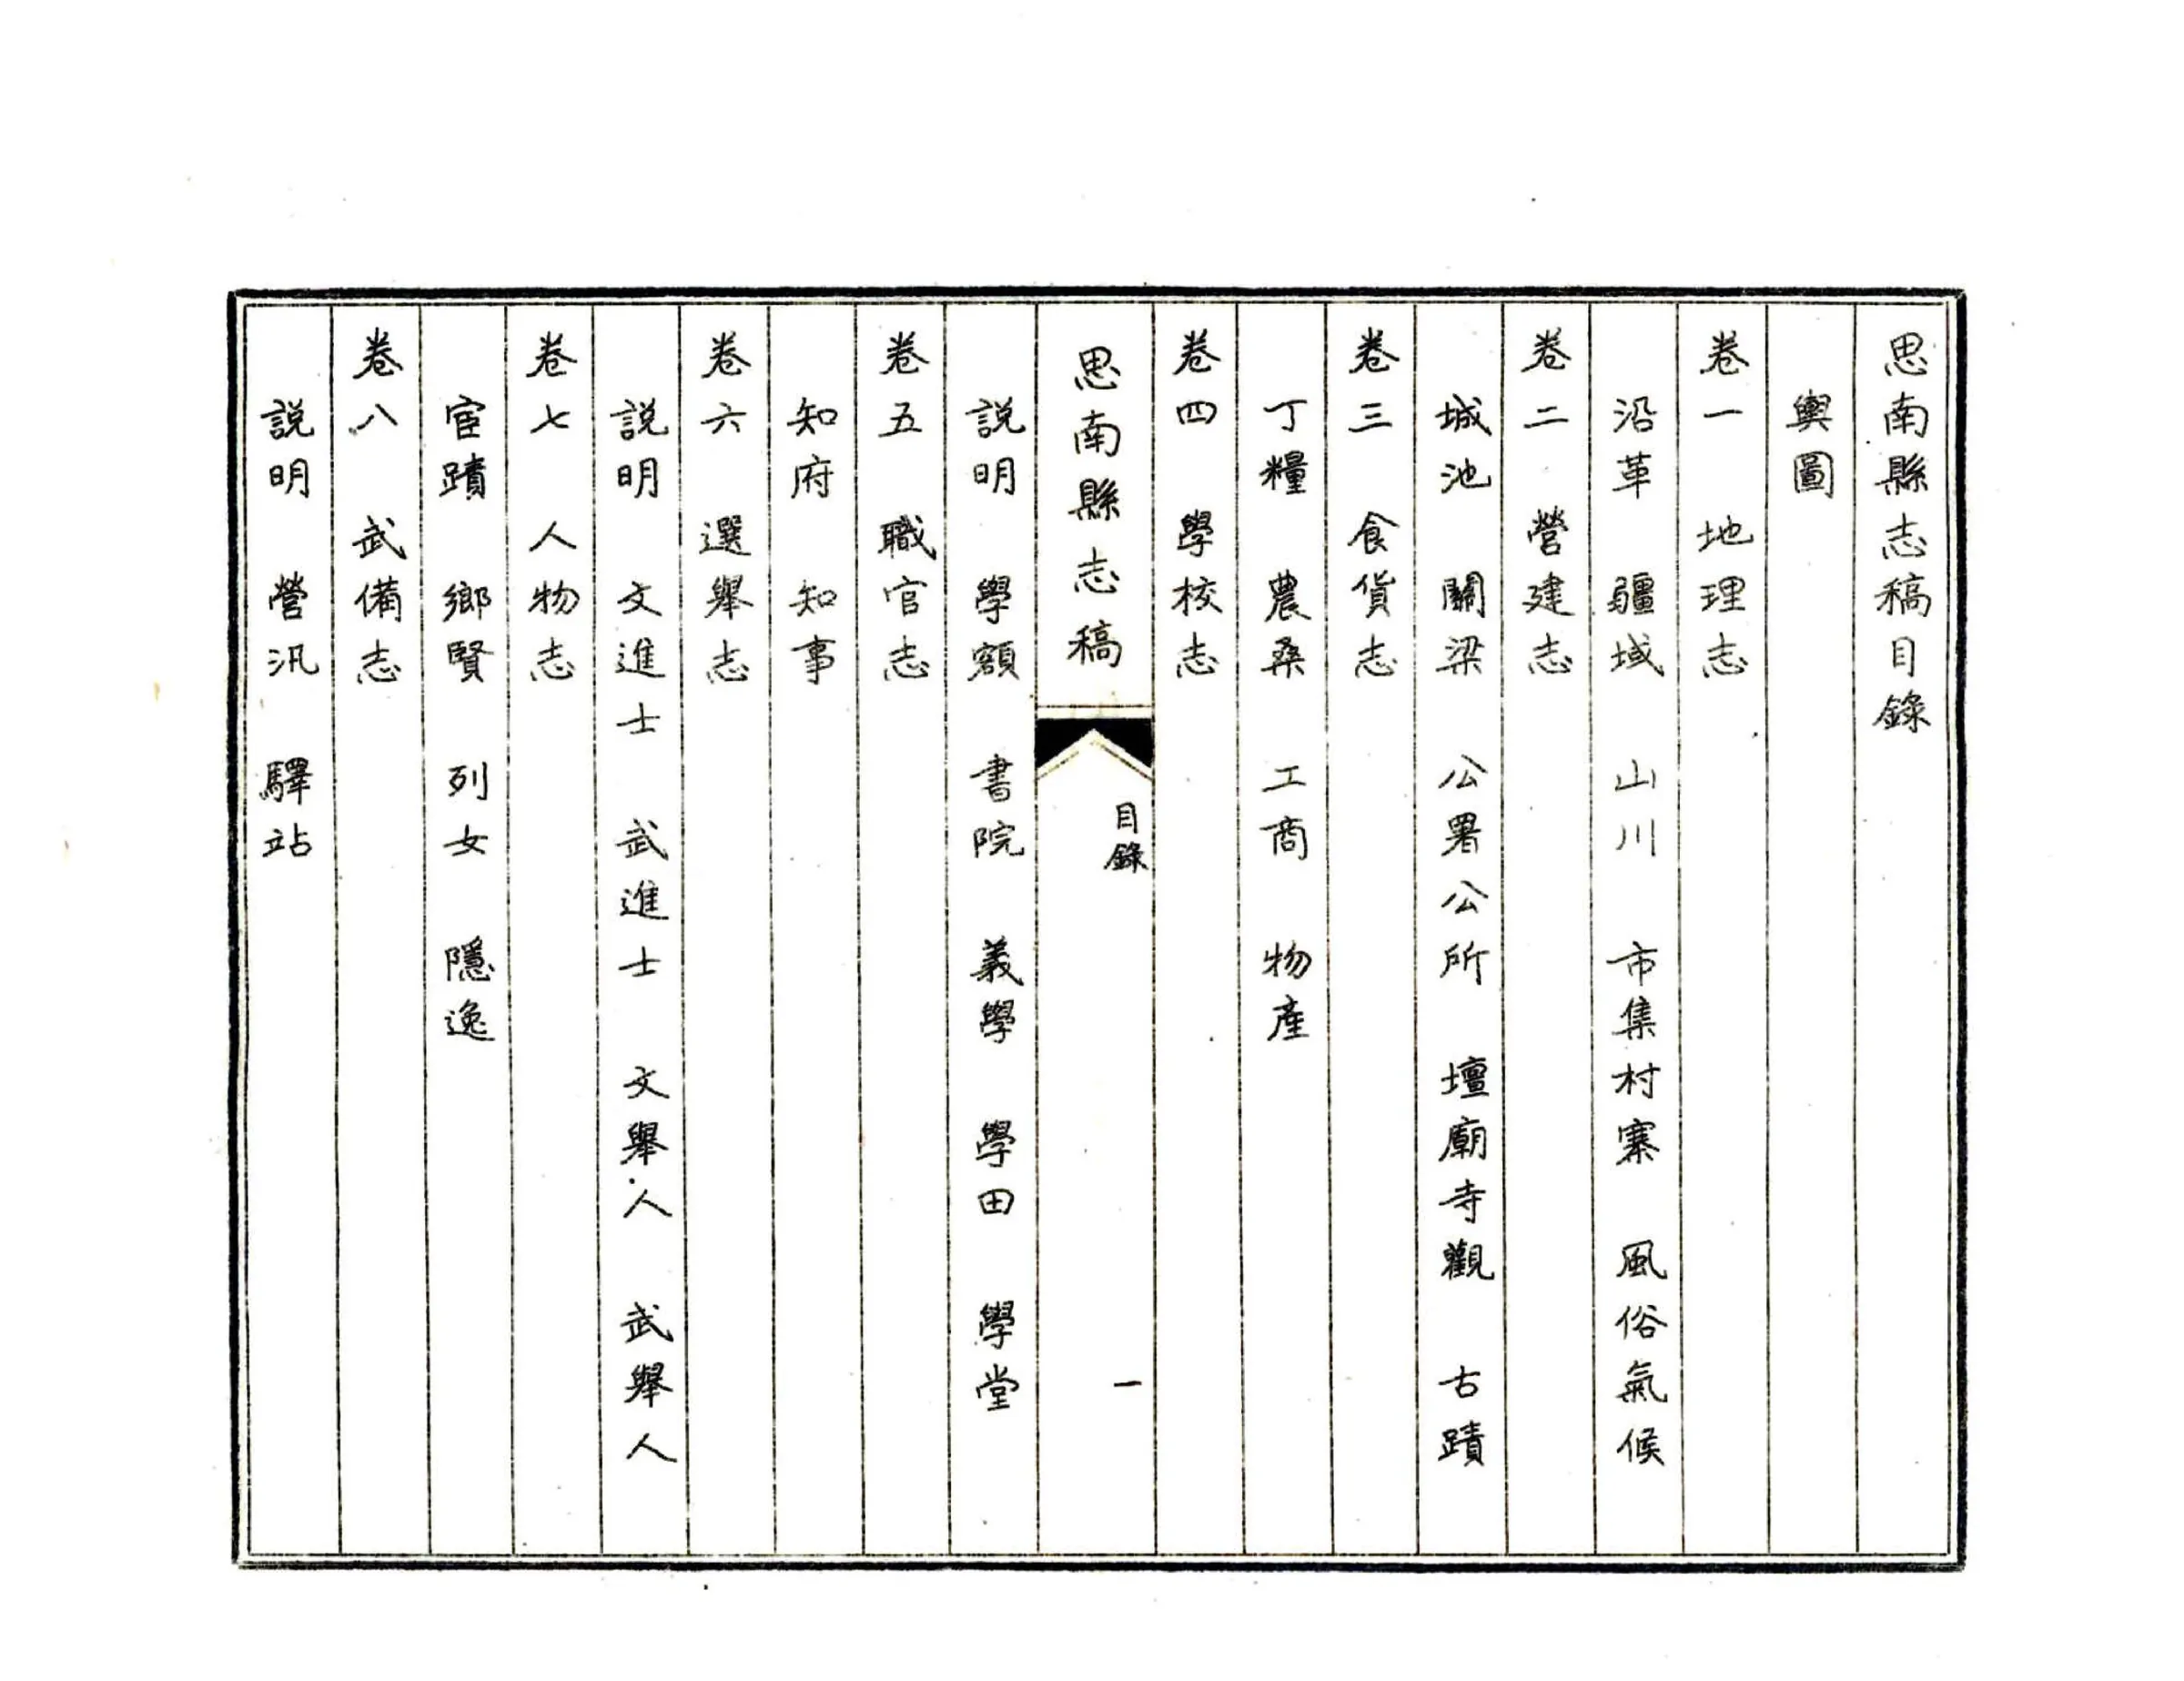 思南縣志稿目錄
輿圖
卷一　地理志
沿革　疆域　山川　市集村寨　風俗氣候
卷二　營建志
城池　關梁　公署公所　壇廟寺觀　古蹟
卷三　食貨志
丁糧　農桑　工商　物產
卷四　學校志
思南縣志稿
目錄
一
說明　學額　書院　義學　學田　學堂
卷五　職官志
知府　知事
卷六　選舉志
說明　文進士　武進士　文舉人　武舉人
卷七　人物志
宦蹟　鄉賢　列女　隱逸
卷八　武備志
說明　營汛　驛站